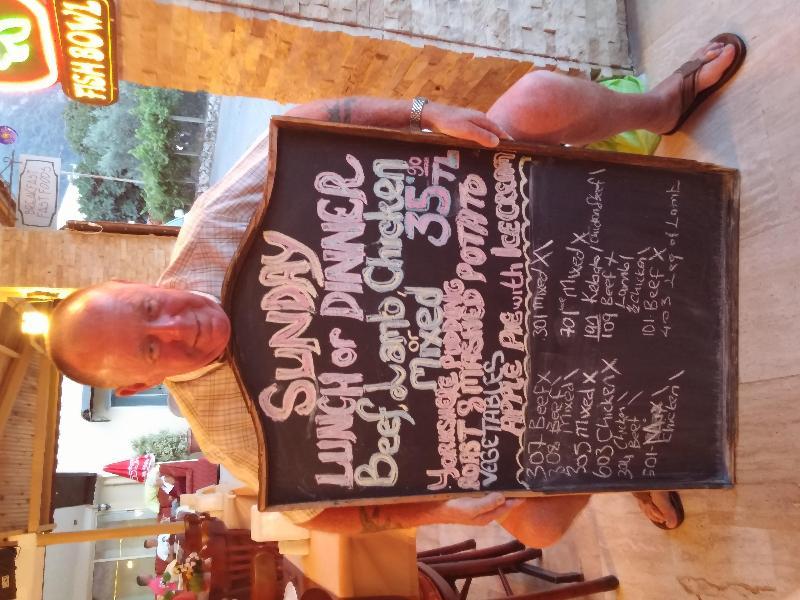 FISH BOWL
BREAKFAST
FAST FOODS
SUNDAY
LUNCH or DINNER
Beef, Lamb, Chicken
or
Mixed 35.90 TL
YORKSHIRE PUDDING
ROAST & MASHED POTATO
VEGETABLES
APPLE PIE with ICE CREAM
307 Beef X
308 Beef X
Mixed \
205 Mixed X
603 Chicken X
304 Chicken \
Beef \
501
Chicken \
301 Mixed X \
701 Mixed X
109 Beef X
Lamb \
& chicken \
101 Beef X
403 Leg of Lamb